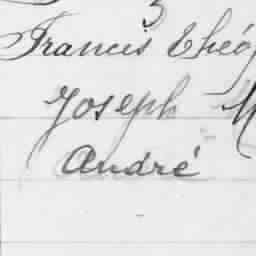 3
Francis Théo
Joseph M
André